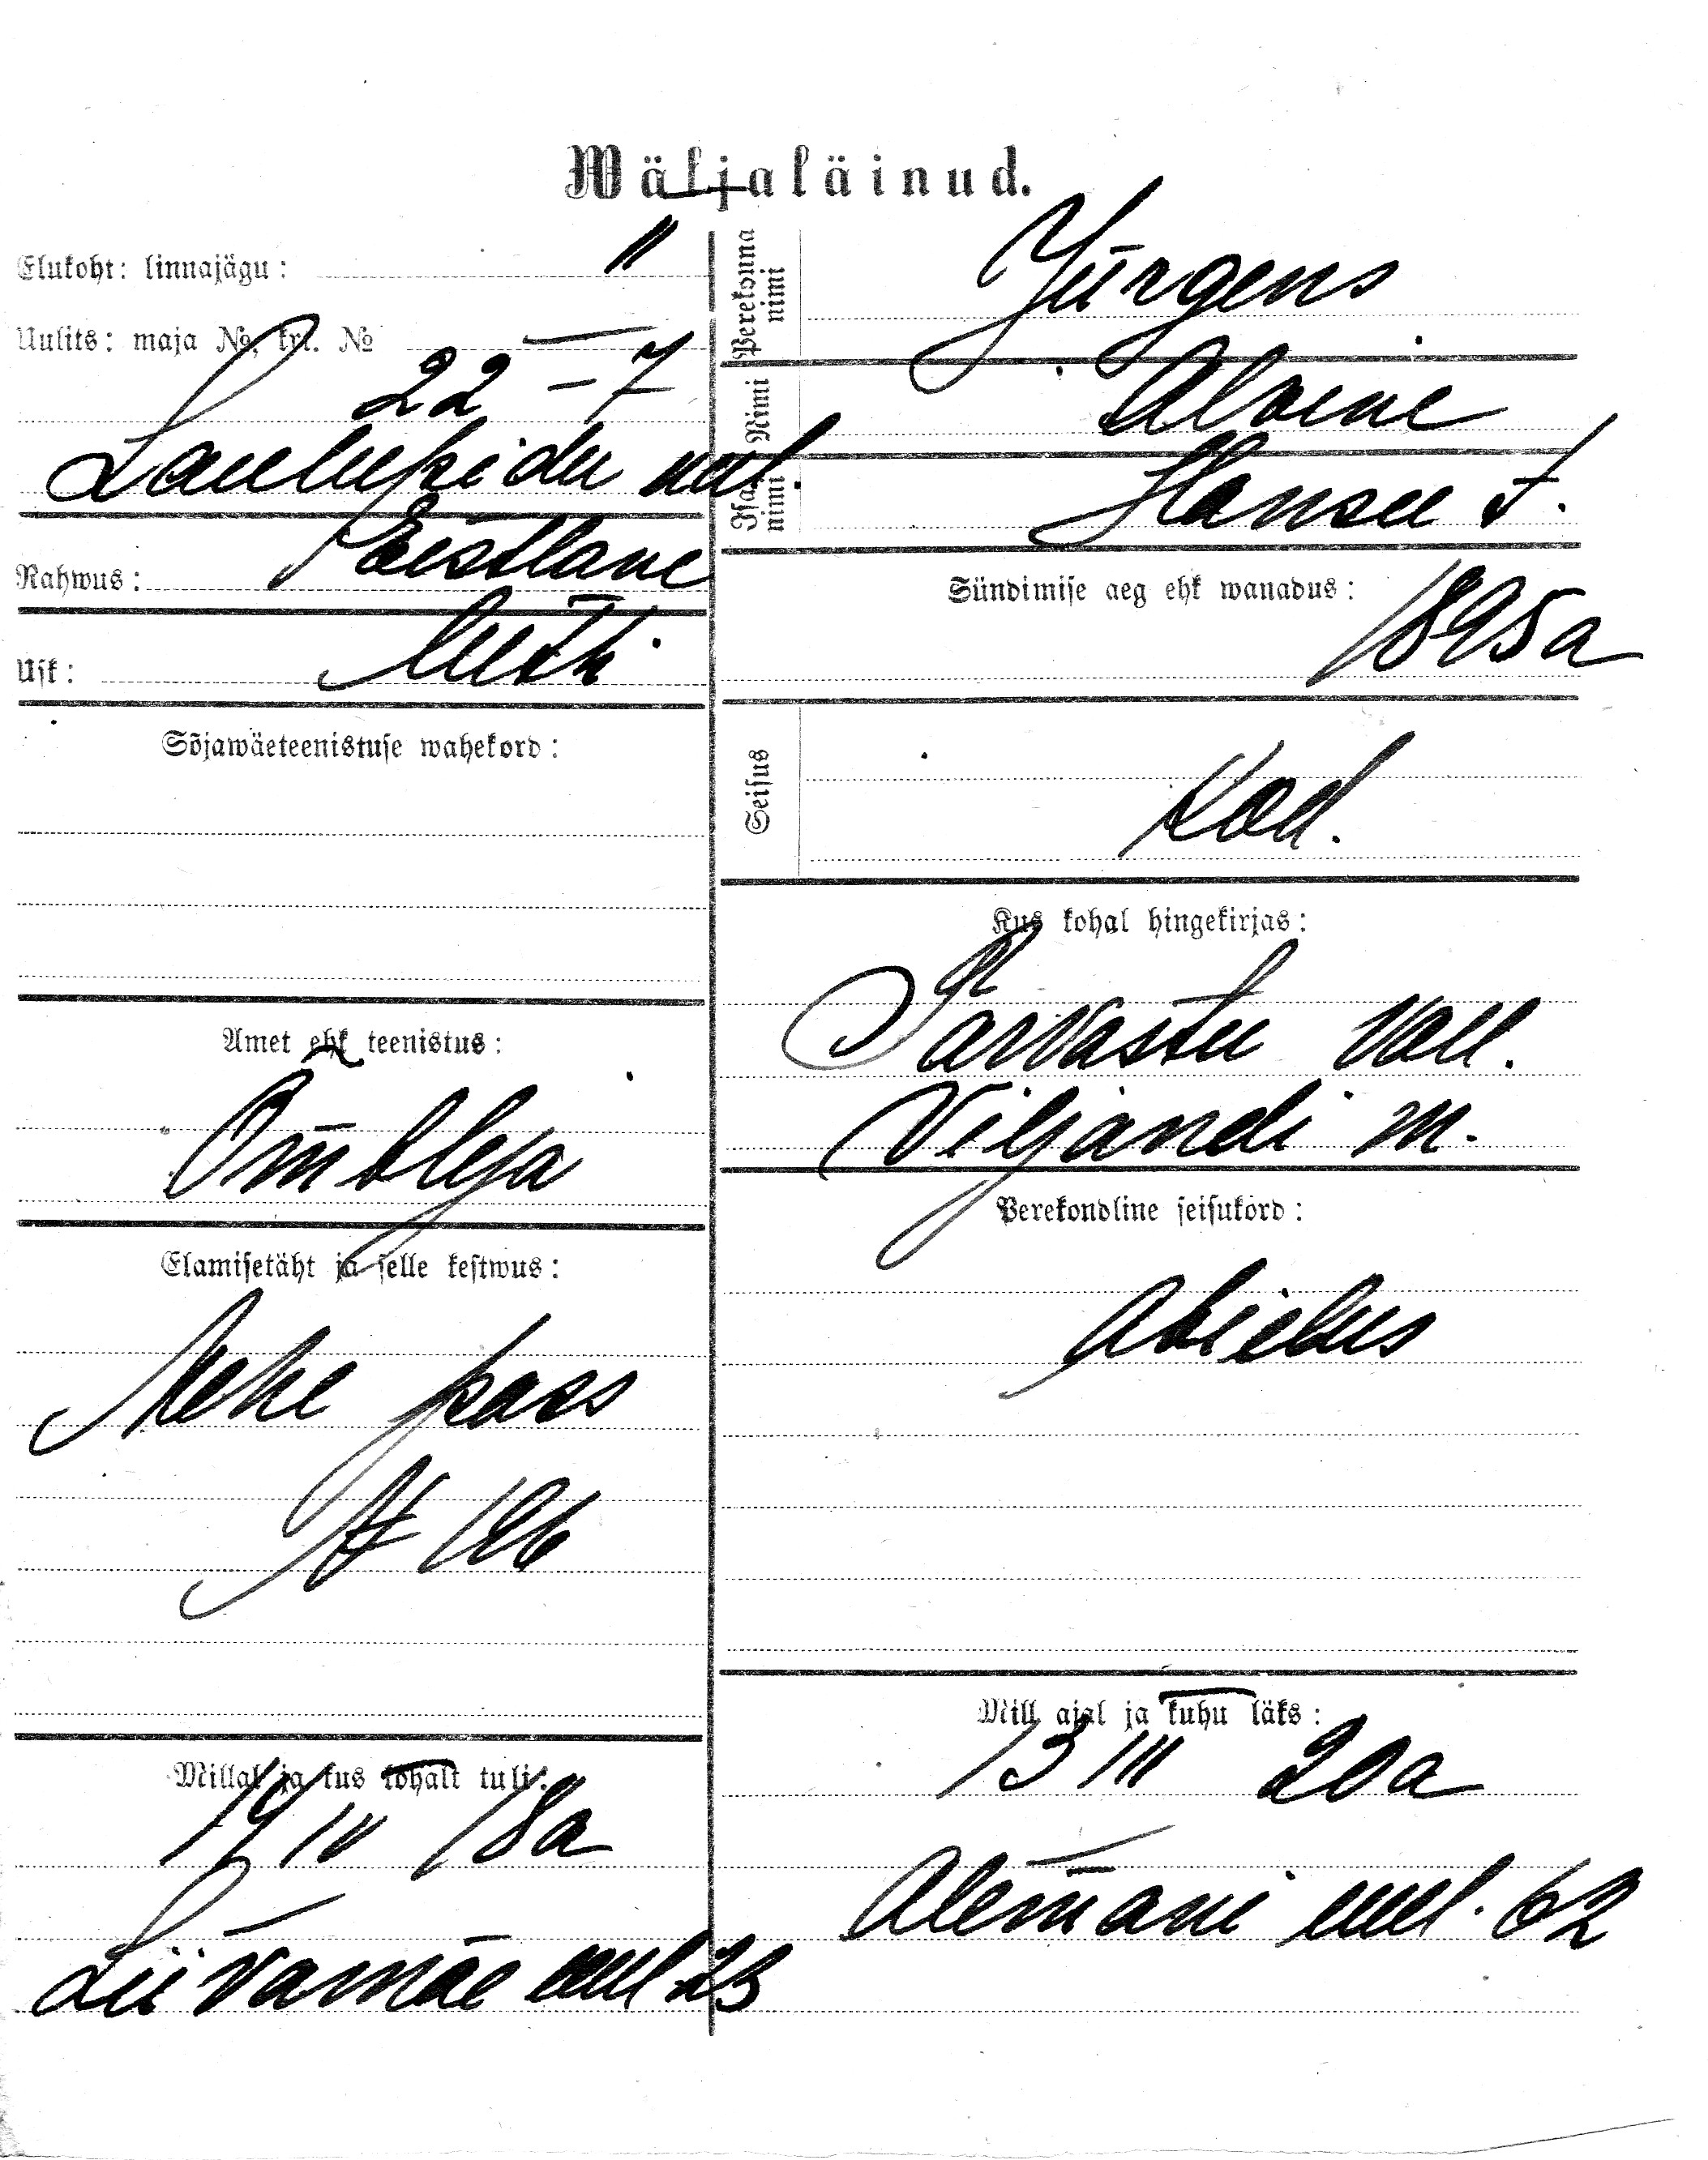 Wäljaläinud.
Elukoht: linnajägu: II
Uulits: maja №, krt. №
22 – 7
Laulupidu uul.
Rahwus: Eestlane
Usk: Luth.
Sõjawäeteenistuse wahekord:
Amet ehk teenistus:
Õmbleja
Elamisetäht ja selle kestwus:
Mehe pass
Millal ja kus kohalt tuli:
19 IV 18a
Liivamäe uul 23
Perekonna nimi Jürgens
Nimi Alvine
Isa nimi Hansu t.
Sündimise aeg ehk wanadus: 1895a
Seisus Kod.
Kus kohal hingekirjas:
Tarvastu vall.
Viljandi m.
Perekondline seisukord:
Abielus
Mill ajal ja kuhu läks:
13 III 20a
Alemani uul. 62